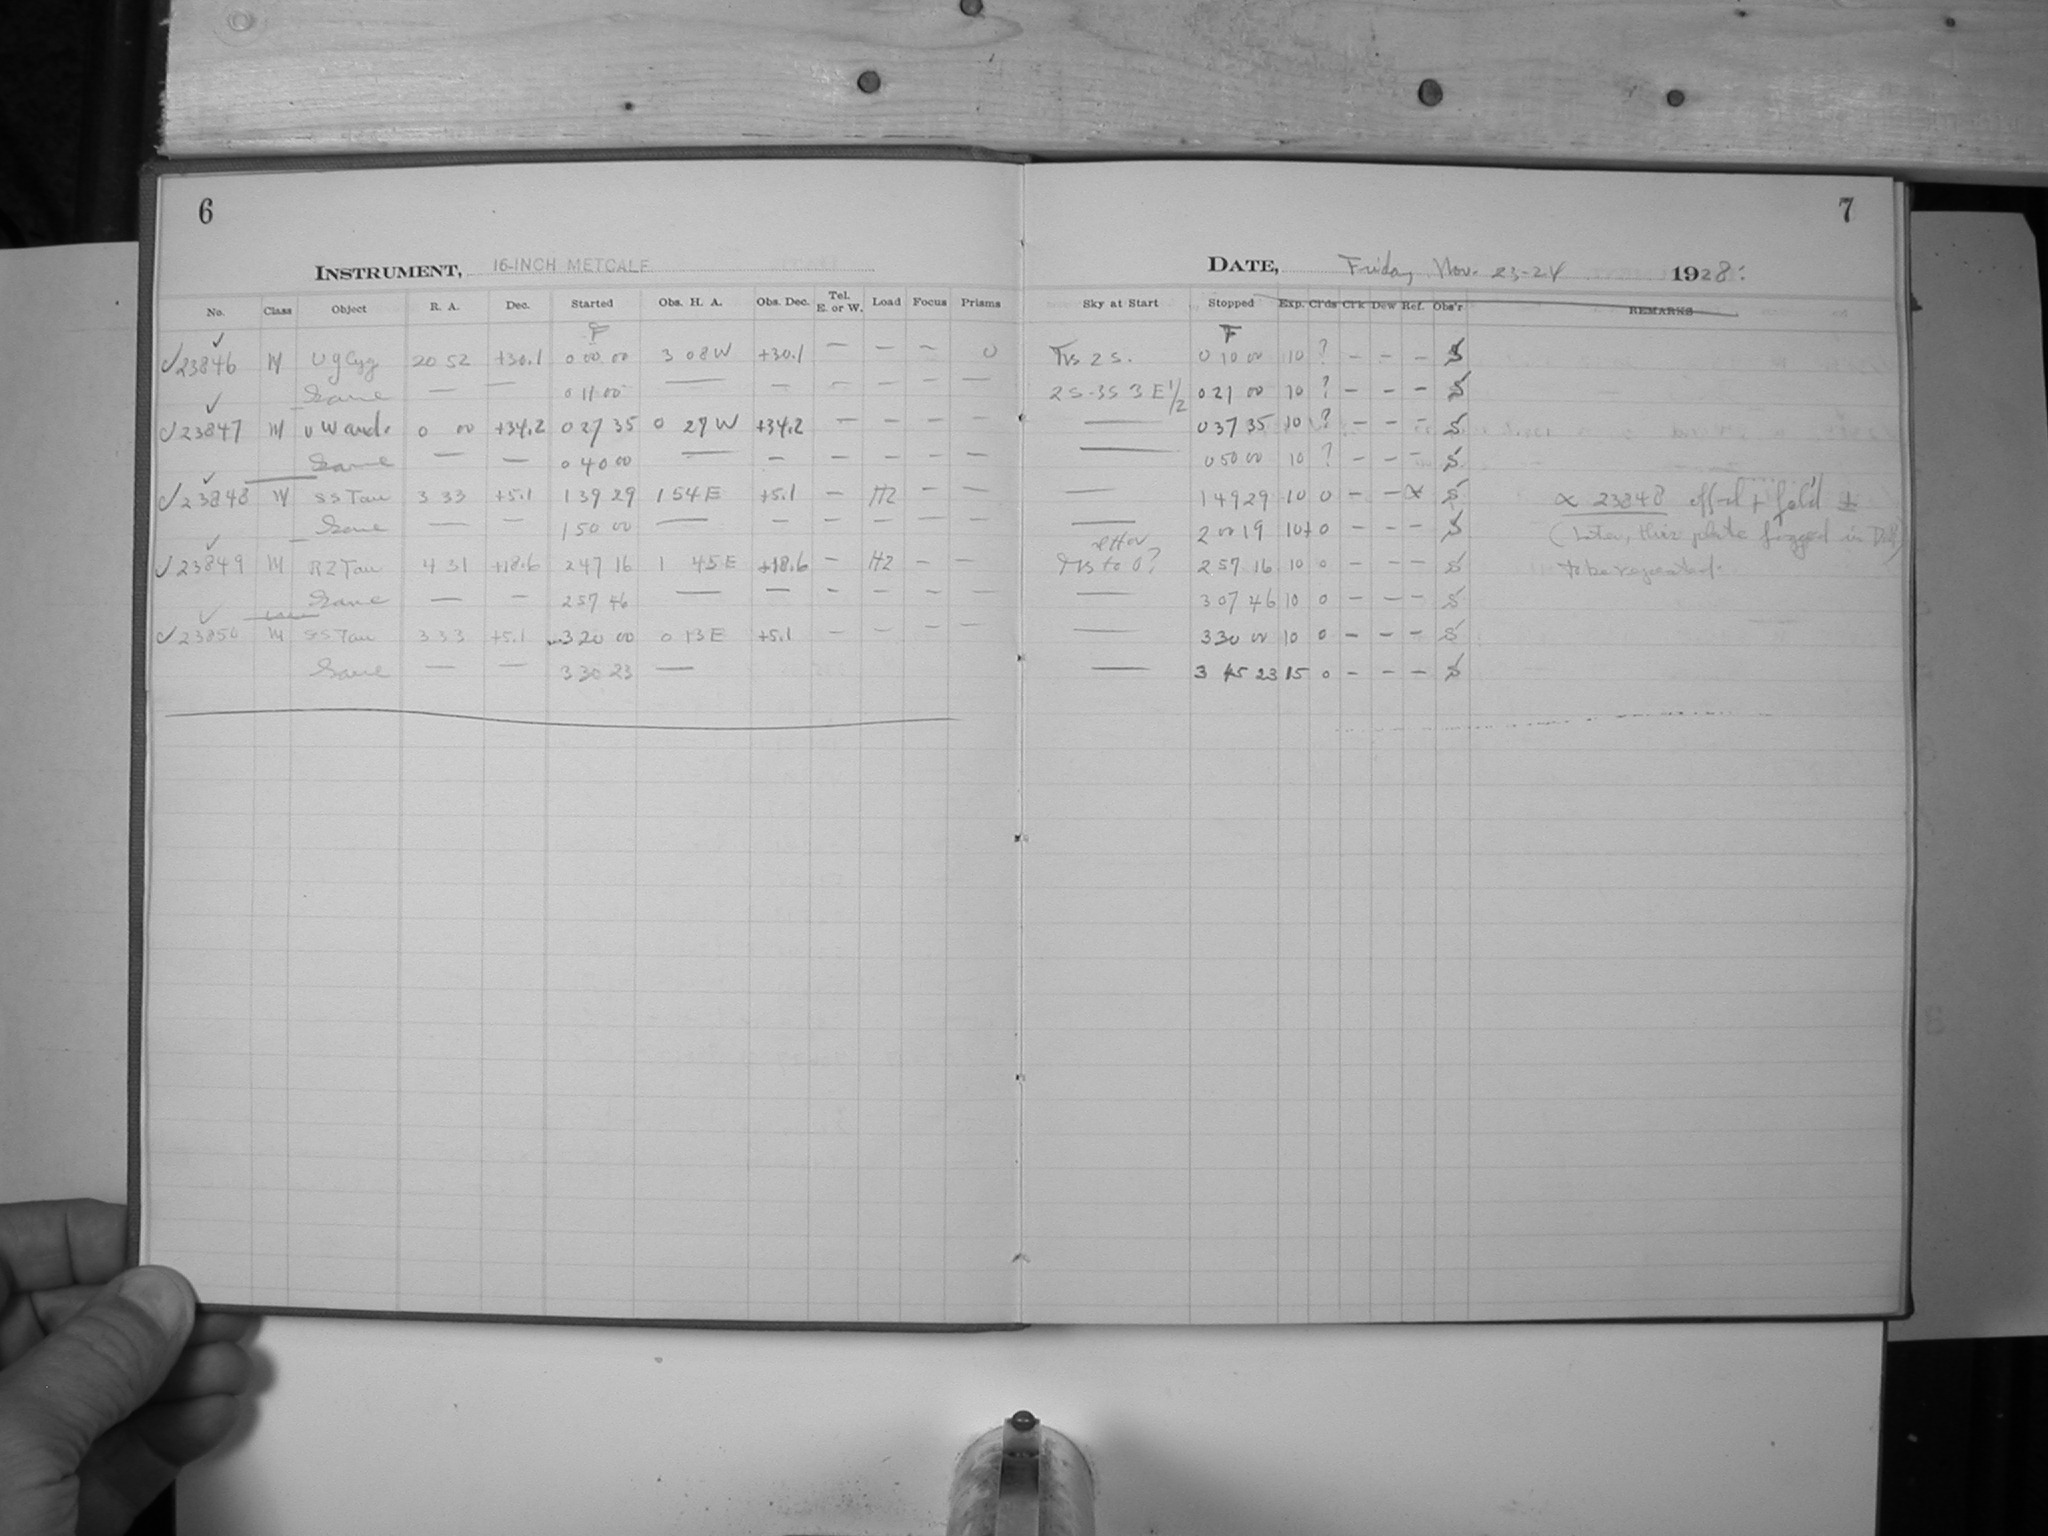 6
INSTRUMENT, 16-INCH METCALF
No. Class Object R. A. Dec. Started Obs. H. A. Obs. Dec. Tel. E. or W. Load Focus Prisms
F
✓23846 M U Cyg 20 52 +30.1 0 00 00 3 08 W +30.1 — — — 0
Same — — 0 11 00 — — — — — —
✓23847 M Wand. 0 00 +34.2 0 27 35 0 27 W +34.2 — — — —
Same — — 0 40 00 — — — — — —
✓23848 M SS Tau 3 33 +5.1 1 39 29 1 54 E +5.1 — H2 — —
Same — — 1 50 00 — — — — — —
✓23849 M RZ Tau 4 31 +18.6 2 47 16 1 45 E +18.6 — H2 — —
Same — — 2 57 46 — — — — — —
✓23850 M SS Tau 3 33 +5.1 3 20 00 0 13 E +5.1 — — — —
Same — — 3 30 23 —
7
DATE, Friday, Nov. 23-24 1928:
Sky at Start Stopped Exp. Cl'ds Cl'k Dew Ref. Obs'r REMARKS
F
2 S. 0 10 00 10 ? — — — S
2S-3S 3 E 1/2 0 21 00 10 ? — — — S
— 0 37 35 10 ? — — — S
— 0 50 00 10 ? — — — S
— 1 49 29 10 0 — — α S α 23848
— 2 00 19 10+ 0 — — — S (Later, this plate fogged in
to 0? 2 57 16 10 0 — — — S to be repeated.
— 3 07 46 10 0 — — — S
— 3 30 00 10 0 — — — S
— 3 45 23 15 0 — — — S